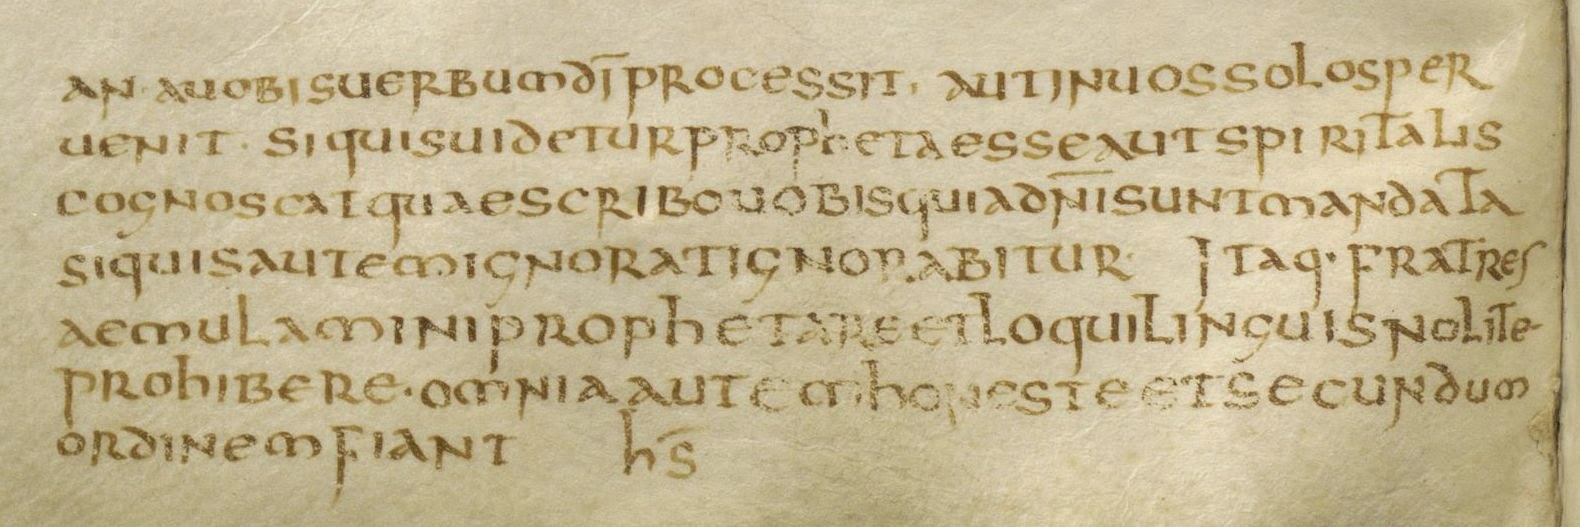 an · auobisuerbumdī processit · autinuossolosper
uenit · siquisuideturprophetaesseautspiritalis
cognoscatquaescribouobisquiadn̄isuntmandata
siquisautemignoratignorabitur · Itaq · fratres
aemulaminiprophetareetloquilinguisnolite
prohibere · omniaautemhonesteetsecundum
ordinemfiant hs̄